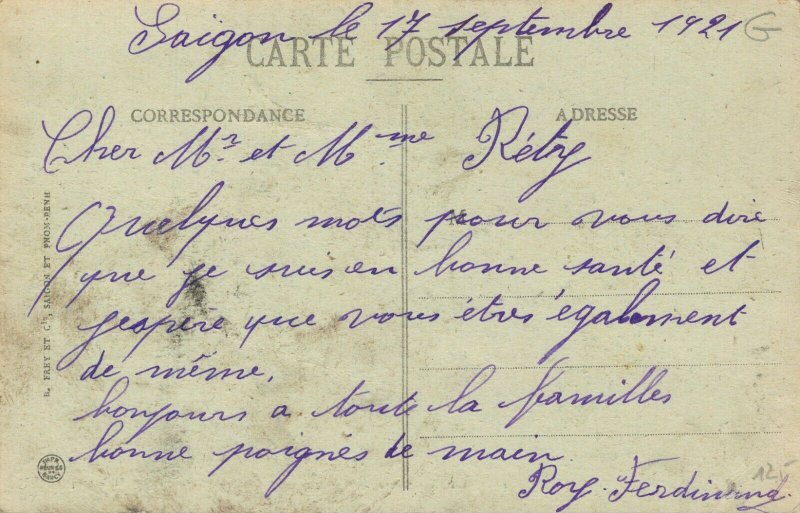 Saigon le 17 septembre 1921 G
CARTE POSTALE
CORRESPONDANCE
ADRESSE
Cher Mr. et Mme Rétry
Quelques mots pour vous dire
que je suis en bonne santé et
jespère que vous étres également
de même.
bonjours a toute la familles
bonne poignés de main
Roy. Ferdinand
125
B. FREY ET Cie, SAIGON ET PNOM-PENH
IMPR.
REUNIES
DE
NANCY